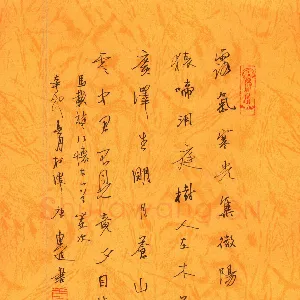 露氣寒光集微陽
猿啼洞庭樹人在木
廣澤生明月蒼山
雲中君不見竟夕自
馬戴楚江懷古
辛卯